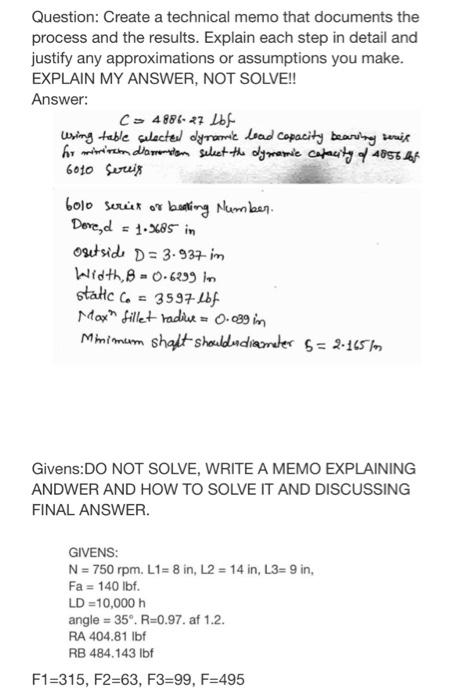 Question: Create a technical memo that documents the
process and the results. Explain each step in detail and
justify any approximations or assumptions you make.
EXPLAIN MY ANSWER, NOT SOLVE!!
Answer:
C = 4886.27 lbf
Using table selected dynamic load capacity bearing series
for select the dynamic capacity of 4856 lbf
6010 Series
6010 series or bearing Number.
d = 1.9685 in
outside D = 3.937 in
Width, B = 0.6299 in
static C₀ = 3597 lbf
Maxⁿ fillet radius = 0.039 in
Minimum shaft shoulder diameter S = 2.165 in
Givens:DO NOT SOLVE, WRITE A MEMO EXPLAINING
ANDWER AND HOW TO SOLVE IT AND DISCUSSING
FINAL ANSWER.
GIVENS:
N = 750 rpm. L1= 8 in, L2 = 14 in, L3= 9 in,
Fa = 140 lbf.
LD =10,000 h
angle = 35°. R=0.97. af 1.2.
RA 404.81 lbf
RB 484.143 lbf
F1=315, F2=63, F3=99, F=495